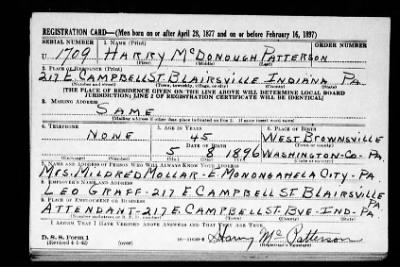 REGISTRATION CARD—(Men born on or after April 28, 1877 and on or before February 16, 1897)
SERIAL NUMBER 1. NAME (Print)
U 1709 HARRY McDONOUGH PATTERSON
2. PLACE OF RESIDENCE (Print)
217 E. CAMPBELL ST BLAIRSVILLE INDIANA PA.
(Number and street) (Town, township, village, or city) (County) (State)
[THE PLACE OF RESIDENCE GIVEN ON THE LINE ABOVE WILL DETERMINE LOCAL BOARD
JURISDICTION; LINE 2 OF REGISTRATION CERTIFICATE WILL BE IDENTICAL]
3. MAILING ADDRESS
SAME
[Mailing address if other than place indicated on line 2. If same insert word same]
4. TELEPHONE 5. AGE IN YEARS 6. PLACE OF BIRTH
NONE 45 WEST BROWNSVILLE
DATE OF BIRTH
5 8 1896 WASHINGTON-CO- PA.
7. NAME AND ADDRESS OF PERSON WHO WILL ALWAYS KNOW YOUR ADDRESS
MRS. MILDRED MOLLAR - E. MONONGAHELA CITY - PA
8. EMPLOYER'S NAME AND ADDRESS
LEO GRAFF - 217 E CAMPBELL ST BLAIRSVILLE PA
9. PLACE OF EMPLOYMENT OR BUSINESS
ATTENDANT - 217 E. CAMPBELL ST. BVE - IND - PA
I AFFIRM THAT I HAVE VERIFIED ABOVE ANSWERS AND THAT THEY ARE TRUE.
D. S. S. Form 1
(Revised 4-1-42) (over)
Harry Mc Patterson